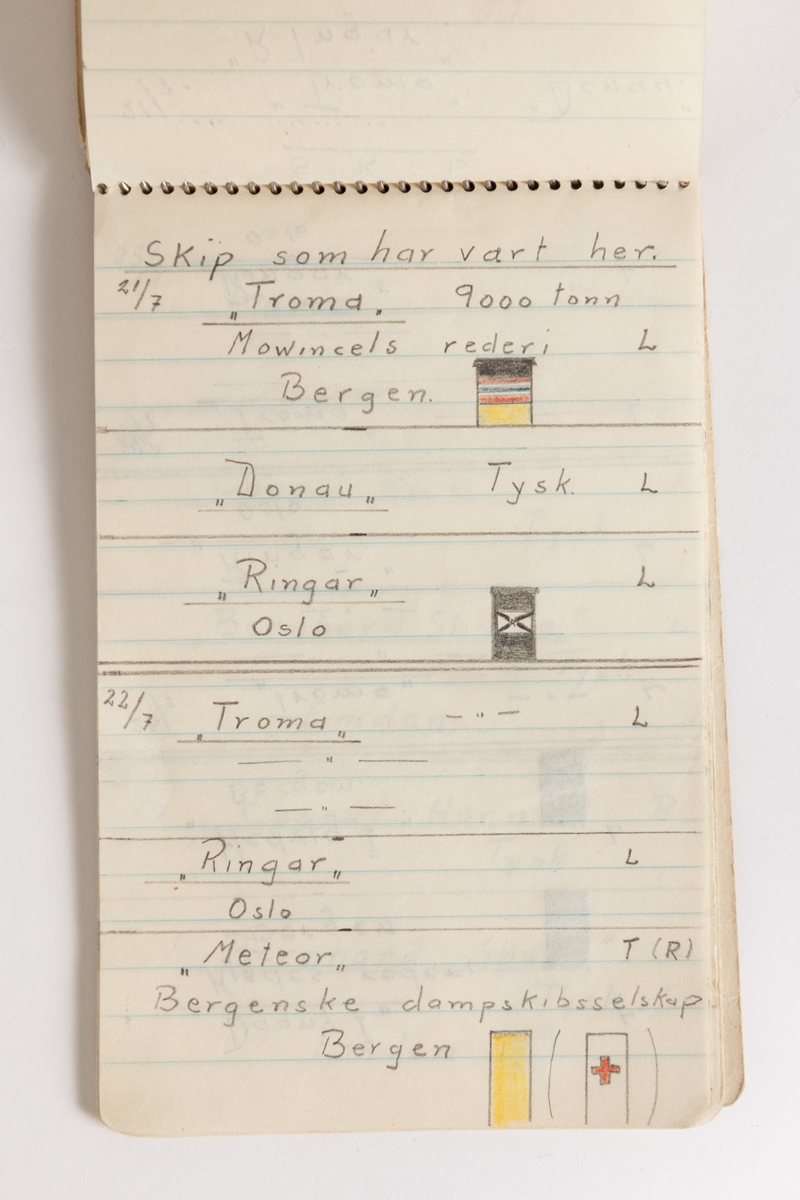 Skip som har vart her.
21/7 „Troma„ 9000 tonn
Mowincels rederi L
Bergen.
„Donau„ Tysk. L
„Ringar„ L
Oslo
22/7 „Troma„ — " — L
— " —
— " —
„Ringar„ L
Oslo
„Meteor„ T (R)
Bergenske dampskibsselskap.
Bergen